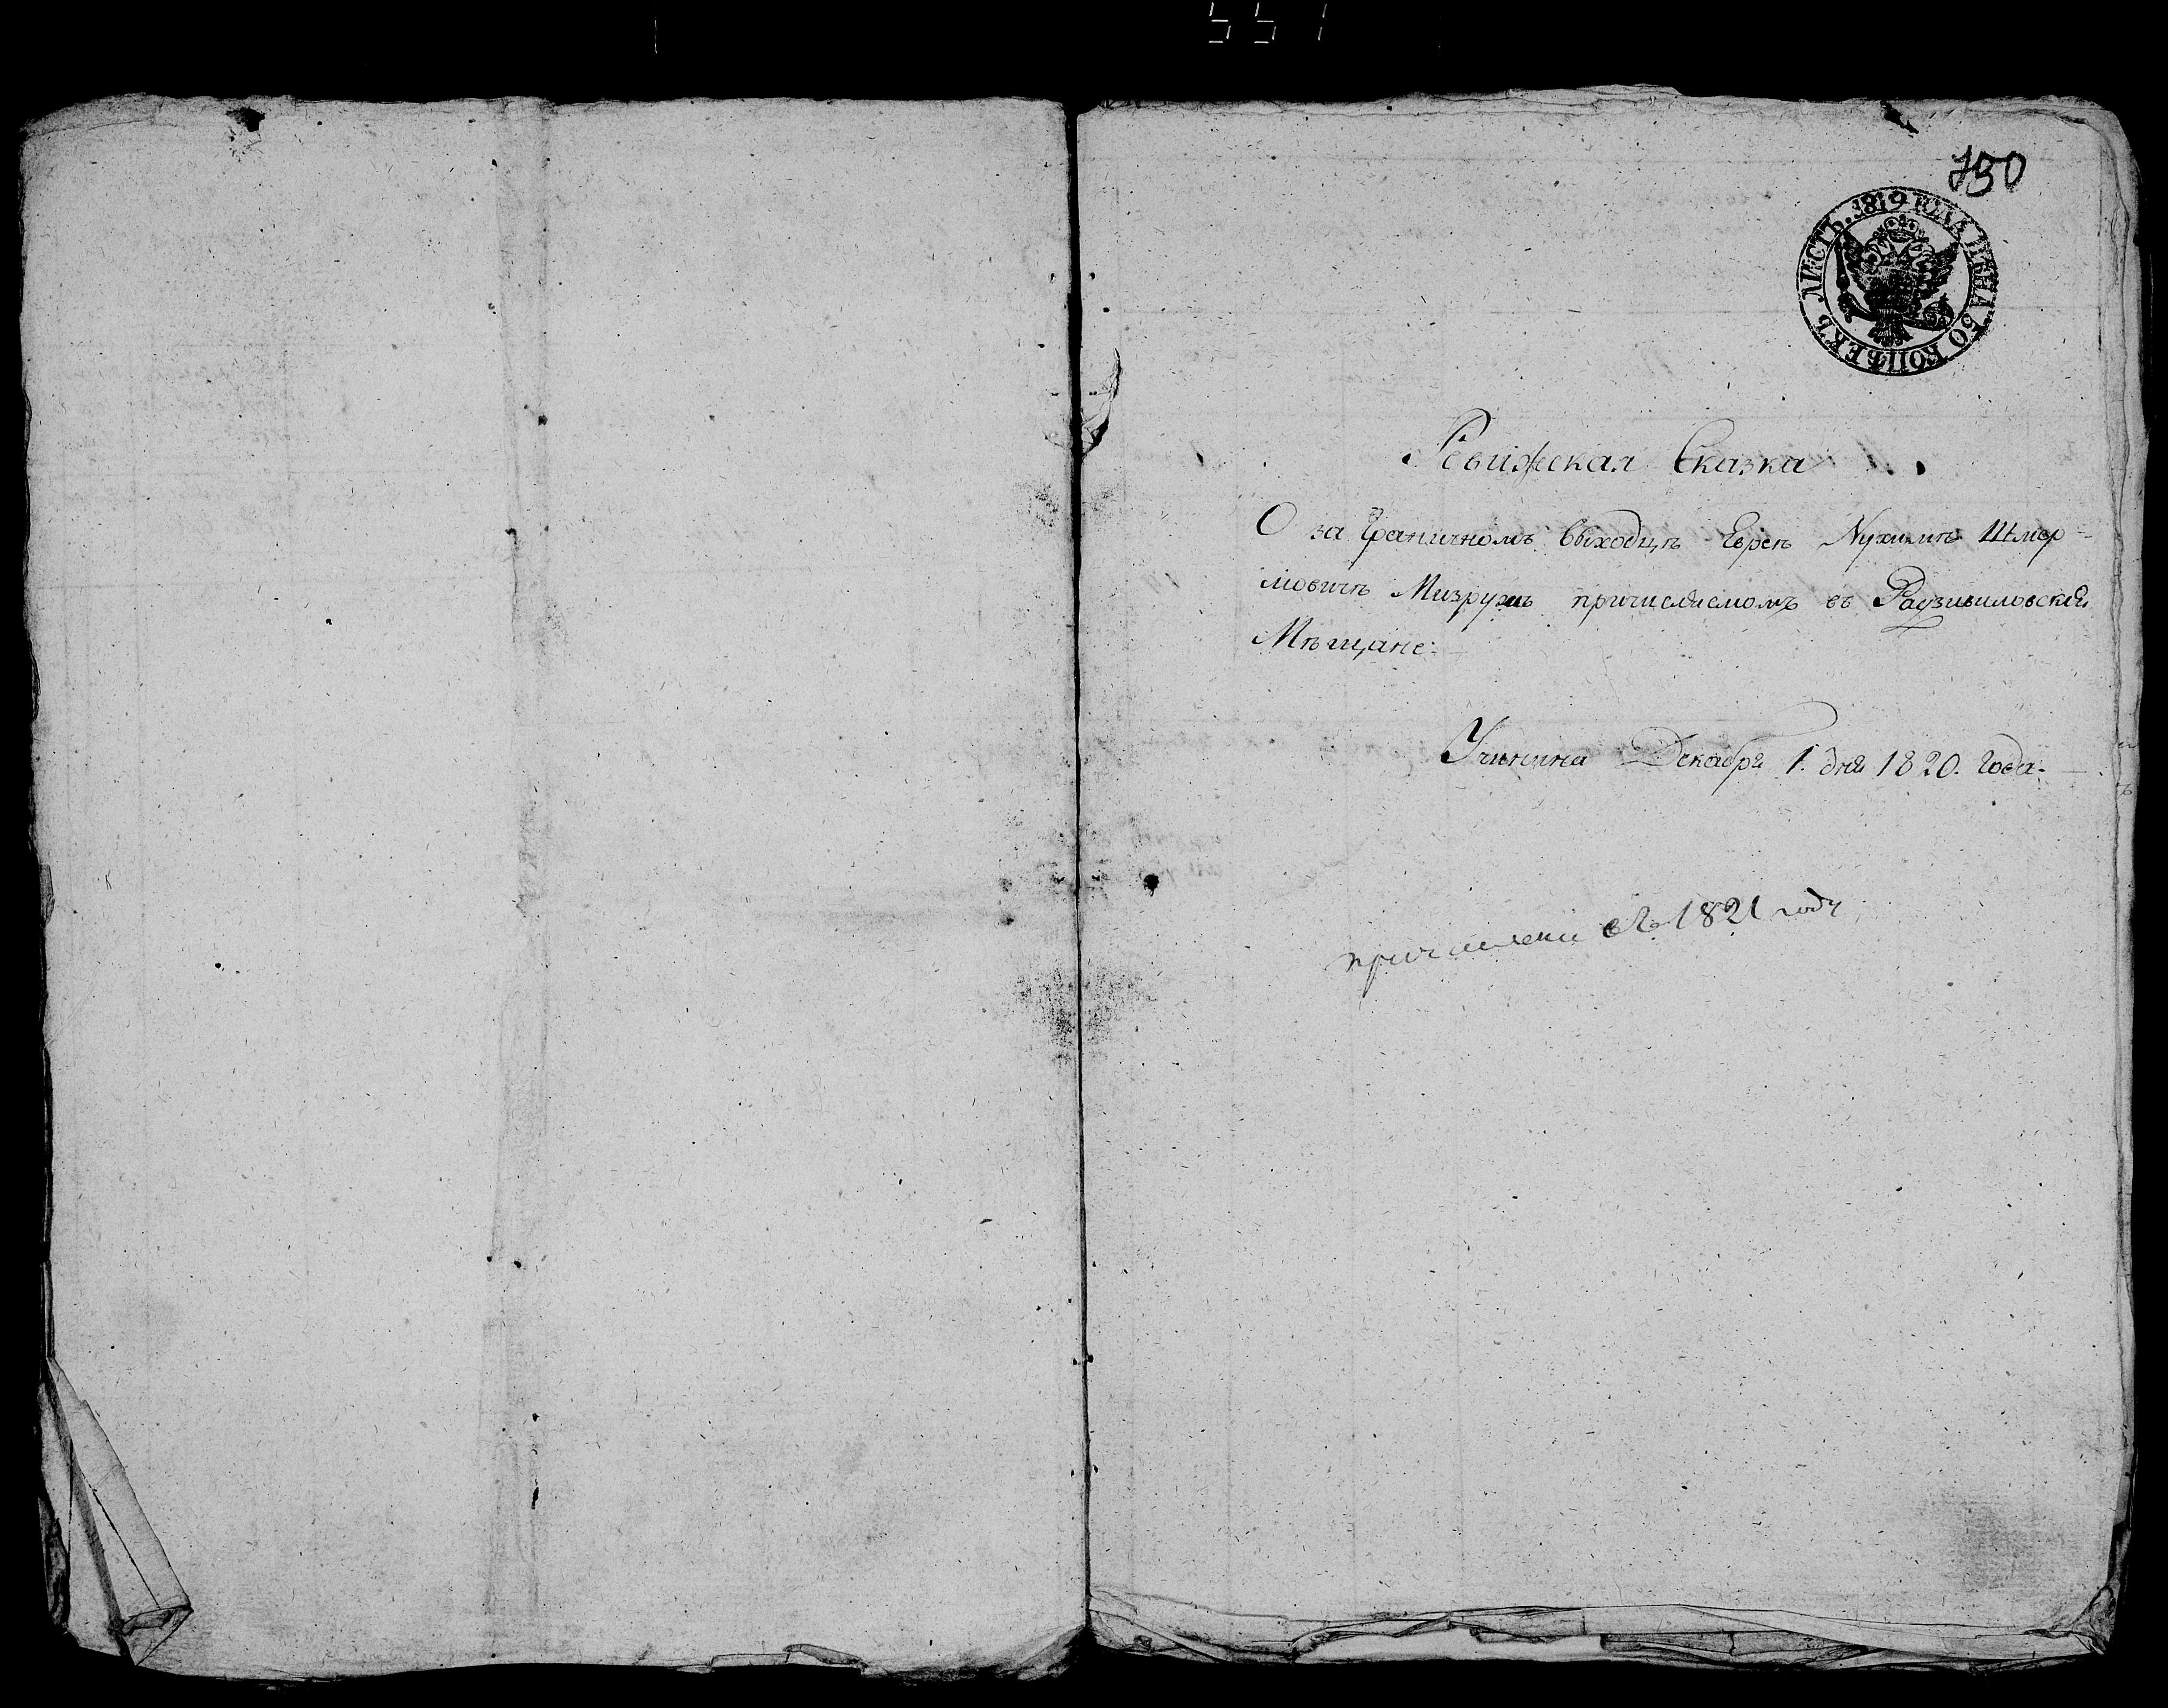 551
730
ЛИСТЪ. 1819 ГОДА ЦѢНА 50 КОПѢЕКЪ
Ревижская Сказка
О за Граничномъ выходцѣ Евреѣ Нухимѣ Шмер=
мовичѣ Мизрухѣ причисляемомъ въ Радзивиловскія
Мѣщане.
Учинена Декабря 1. дня 1820. года.
причислени въ 1821 году